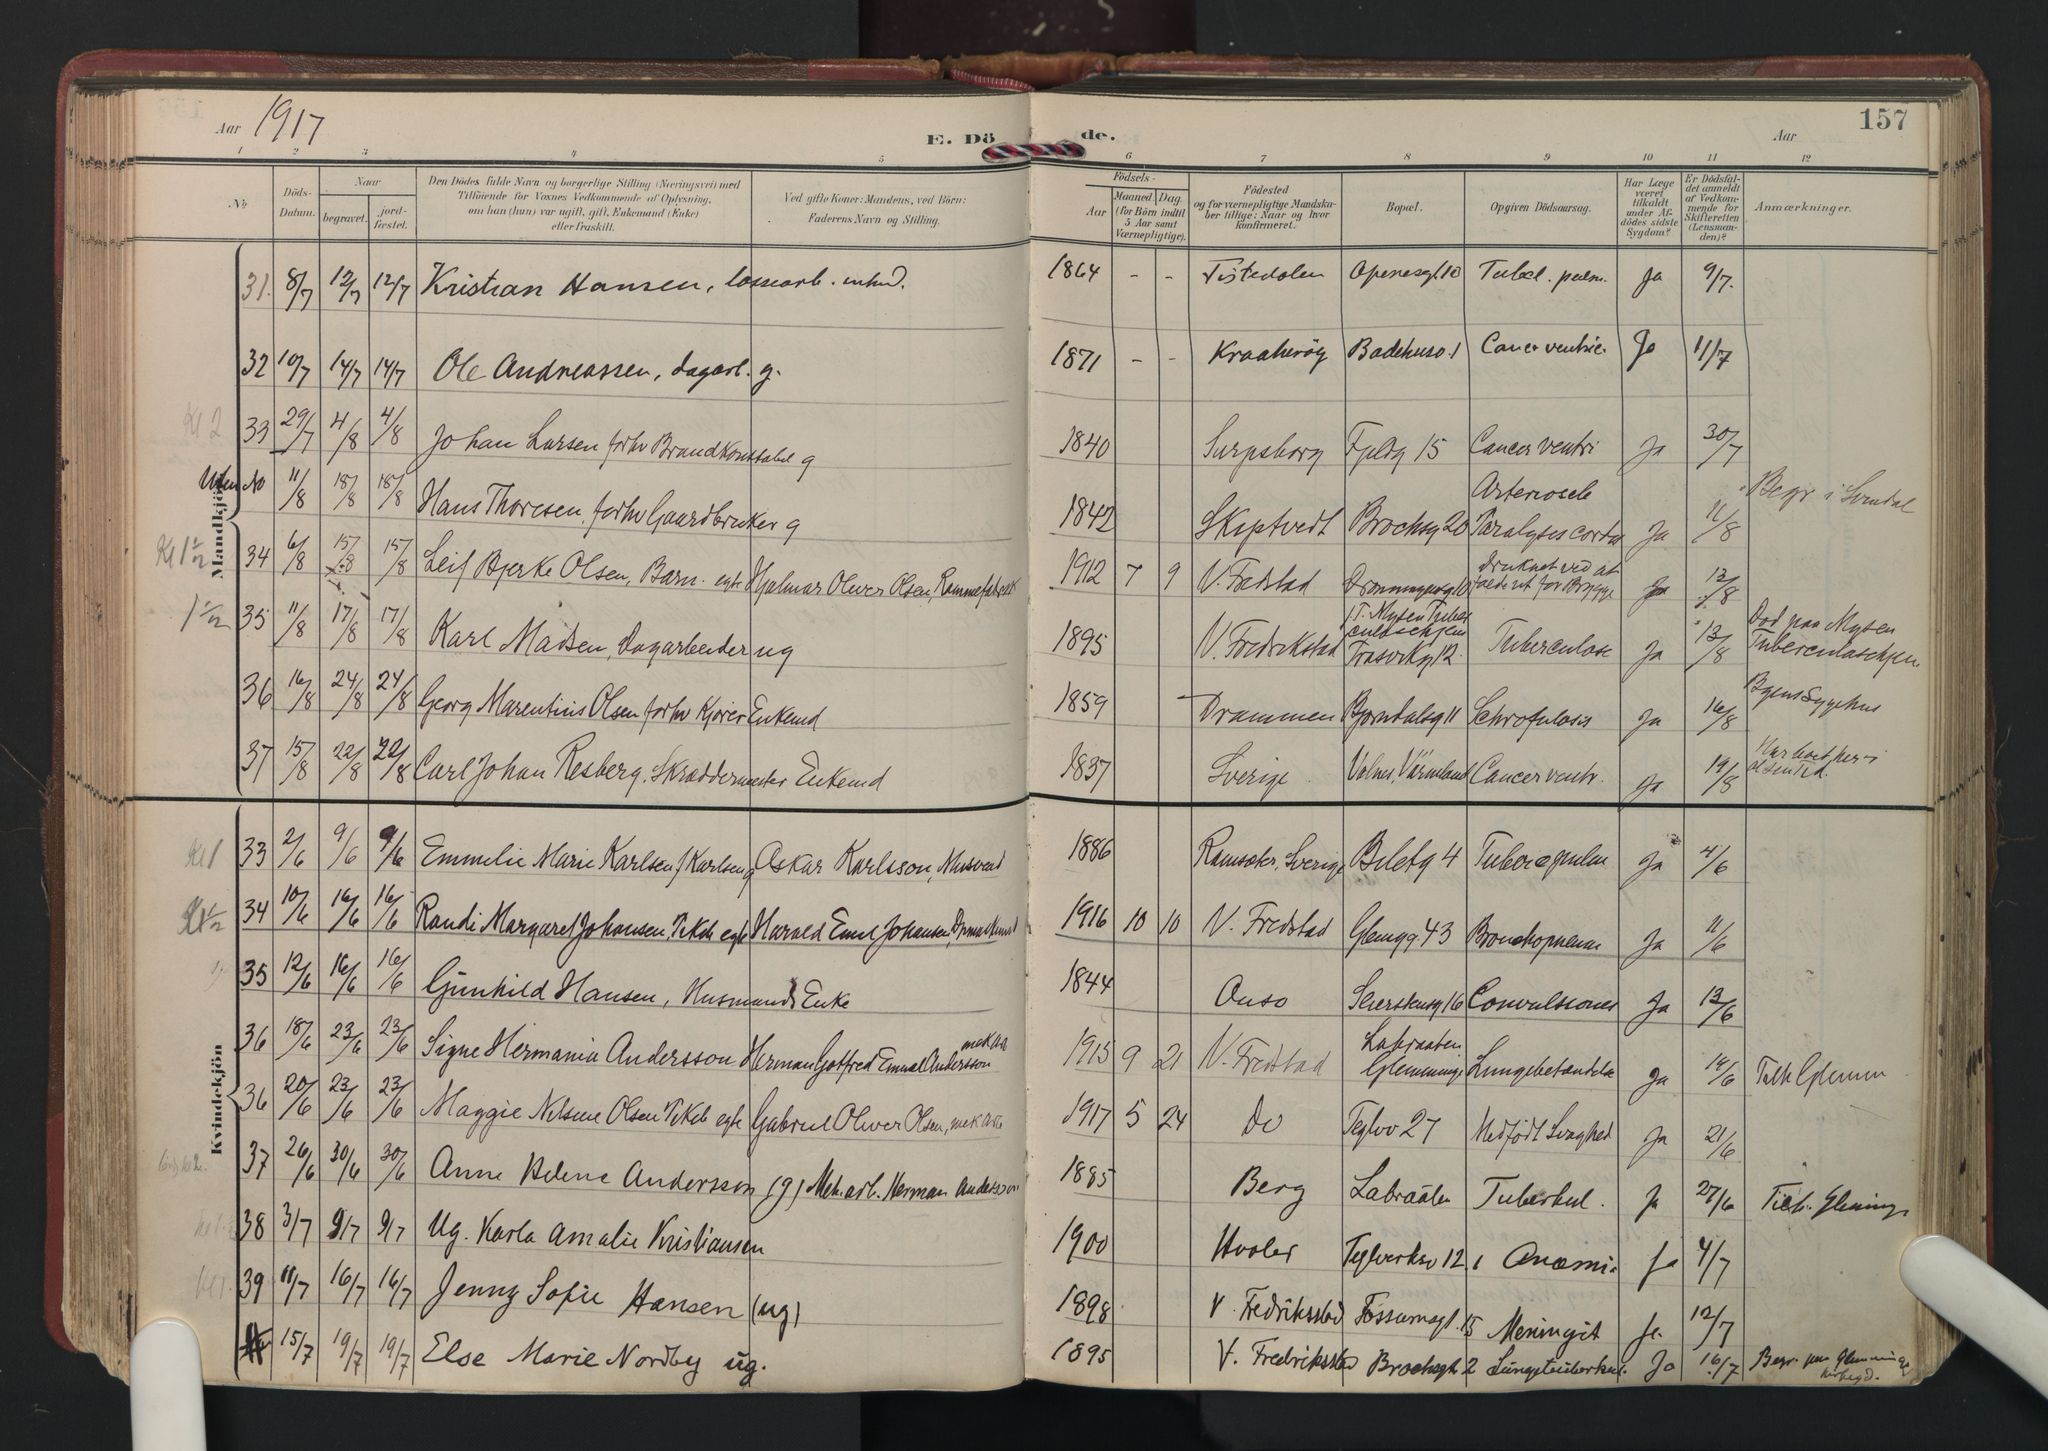 157
Aar 1917
E. Dö de.
Aar
1 2 3 4 5 6 7 8 9 10 11 12
No.
Döds-Datum.
Naar
begravet.
jord-fæstet.
Den Dödes fulde Navn og borgerlige Stilling (Næringsvei) med
Tilföiende for Voxnes Vedkommende af Oplysning,
om han (hun) var ugift, gift, Enkemand (Enke)
eller fraskilt.
Ved gifte Koner: Mandens, ved Börn:
Faderens Navn og Stilling.
Födsels-
Aar
Maaned. Dag.
(for Börn indtil
5 Aar samt
Værnepligtige).
Födested
og for værnepligtige Mandska-
ber tillige: Naar og hvor
konfirmeret.
Bopæl.
Opgiven Dödsaarsag.
Har Læge
været
tilkaldt
under Af-
dödes sidste
Sygdom?
Er Dödsfal-
det anmeldt
af Vedkom-
mende for
Skifteretten
(Lensman-
den)?
Anmærkninger.
Mandkjön
31. 8/7 12/7 12/7 Kristian Hansen, lossearb. 1864 - - Tistedalen Tubel. pulm. Ja 9/7.
32 10/7 14/7 14/7 Ole Andreassen, dagarb. g. 1871 - - Kraakerøy Cancer ventric. Ja 11/7
33 29/7 4/8 4/8 Johan Larsen forhv Brandkonstabel g 1840 Sarpsborg 15 Cancer ventri Ja 30/7
Uten No 11/8 18/8 18/8 Hans Thoresen, forhv Gaardbruker g 1842 Skiptvedt Brochsg 20 Paralysis cordis Ja 11/8 Begr i
34 6/8 15/8 15/8 Leif Bjerke Olsen, Barn. egte Hjalmar Oliver Olsen, 1912 7 9 V. Fredstad Druknet ved at falde ut for Brygge Ja 13/8
35 11/8 17/8 17/8 Karl Madsen, Dagarbeider ug 1895 V. Fredrikstad Tuberculose Ja 13/8 Död paa Mysen Tuberculosehjem
36 16/8 24/8 24/8 Georg Marentius Olsen forhv Kjører Enkemd 1859 Drammen Bjørndalsg 11 Schrofulosis Ja 16/8 Byens Sygehus
37 15/8 22/8 22/8 Carl Johan Resberg, Skræddermester Enkemd 1837 Sverige Värmland Cancer ventr. Ja 19/8
Kvindekjön
33 2/6 9/6 9/6 Emmelie Marie Karlsen f Karlsen g Oskar Karlsson, 1886 Sverige 4 Ja 4/6
34 10/6 16/6 16/6 Randi Margaret Johansen, egte Harald Emil Johansen, 1916 10 10 V. Fredstad Glemgg. 43 Bronchopneum Ja 11/6
35 12/6 16/6 16/6 Gunhild Hansen, Husmands Enke 1844 Onsø 16 Convulsiones Ja 13/6
36 18/6 23/6 23/6 Signe Hermania Andersson Herman Gotfred Emanl Andersson mek arb 1915 9 21 V. Fredstad Labraaten Glemminge Lungebetændelse Ja 19/6
36 20/6 23/6 23/6 Maggie Nelsine Olsen egte Gabriel Oliver Olsen, mek arb 1917 5 24 Do Teglvv 27 Medfödt Svaghed Ja 21/6
37 26/6 30/6 30/6 Anne Helene Andersson (g) Mek. arb. Herman Andersson 1885 Berg Labraåten Tuberkul. Ja 27/6
38 3/7 9/7 9/7 Ug. Karla Amalie Kristiansen 1900 Hvaler Teglverksv 12 Anæmi Ja 4/7
39 11/7 16/7 16/7 Jenny Sofie Hansen (ug) 1898 V. Fredriksstad Fossumsgt. 15 Meningit Ja. 12/7
15/7 19/7 19/7 Else Marie Nordby ug. 1895 V. Fredriksstad Brochsgt 2 Lungetuberkul. Ja 16/7 Begr. paa Glemminge kirkegd.